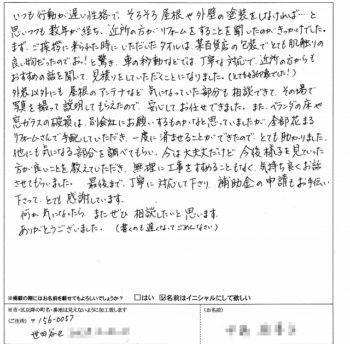 いつも行動が遅い性格で、そろそろ屋根や外壁の塗装をしなければ…と
思いつつも数年が経ち、近所の方がリフォームをすることを聞いたのがきっかけでした。
まず、ご挨拶に来られた時にいただいたタオルは、某百貨店の包装でとても肌触りの
良い物だったのでお!と驚き、車の移動などでは、丁寧な対応で、近所の方からも
おすすめの話を聞いて、見積りをしていただくことになりました。(とてもお洒落でした!)
外装以外にも屋根のアンテナなど、気になっていた部分も相談できて、その場で
写真を撮って説明してもらえたので、安心してお任せできました。また、ベランダの床や
窓ガラスの破損は、別会社にお願いするものかなと思っていましたが、全部花まる
リフォームさんで手配していただき、一度に済ませることができたので、とても助かりました。
他にも気になる部分を調べてもらい、今は大丈夫だけど今後様子を見ていった
方が良いことを教えていただき、無理に工事をすすめることもなく、気持ち良くお話
させてもらいました。最後まで、丁寧に対応して下さり、補助金の申請もお手伝い
下さって、とても感謝しています。
何か気になったら またぜひ相談したいと思います。
ありがとうございました。(書くのも遅くなってごめんなさい)
※掲載の際にはお名前を載せてもよろしいでしょうか? □はい ☑名前はイニシャルにして欲しい
※市・区以降の町名・番地は見えないように加工致します
(ご住所) 〒156-0057
(お名前)
世田谷区